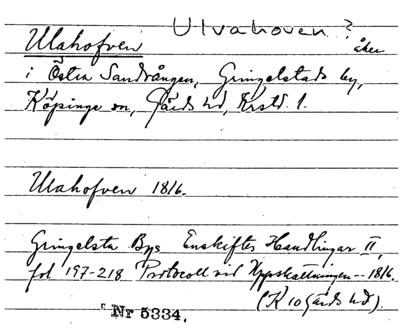 Ulvahoven?
Ulahofven åker
i Östra Sandvången, Gringelstads by,
Köpinge sn, Gärds hd, Krstd. l.
Ulahofven 1816.
Gringelsta Bys Enskiftes Handlingar II,
fol 197-218 Protocoll vid Uppskattningen -- 1816.
(K 10 Gärds hd).
Nr 5334.